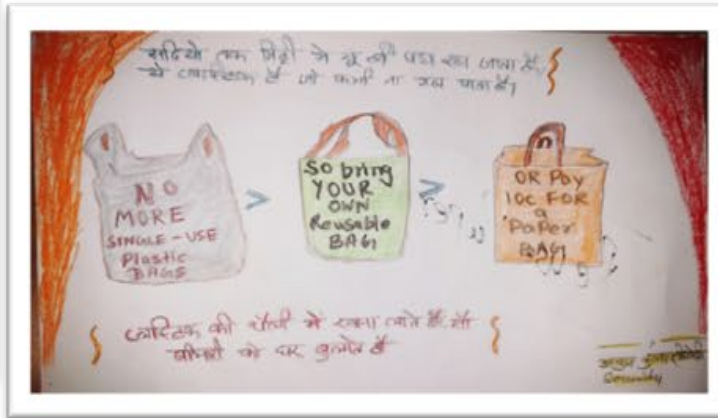 सदियो तक मिट्टी मे यू ही पड़ा रह जाता है,
ये प्लास्टिक है जो कभी ना गल पाता है।
NO
MORE
SINGLE-USE
Plastic
BAGS
>
SO bring
YOUR
OWN
Reusable
BAG
>
OR Pay
10c FOR
a
Paper
BAG
प्लास्टिक की थैली में खाना खाते है, तो
बीमारी को घर बुलाते है